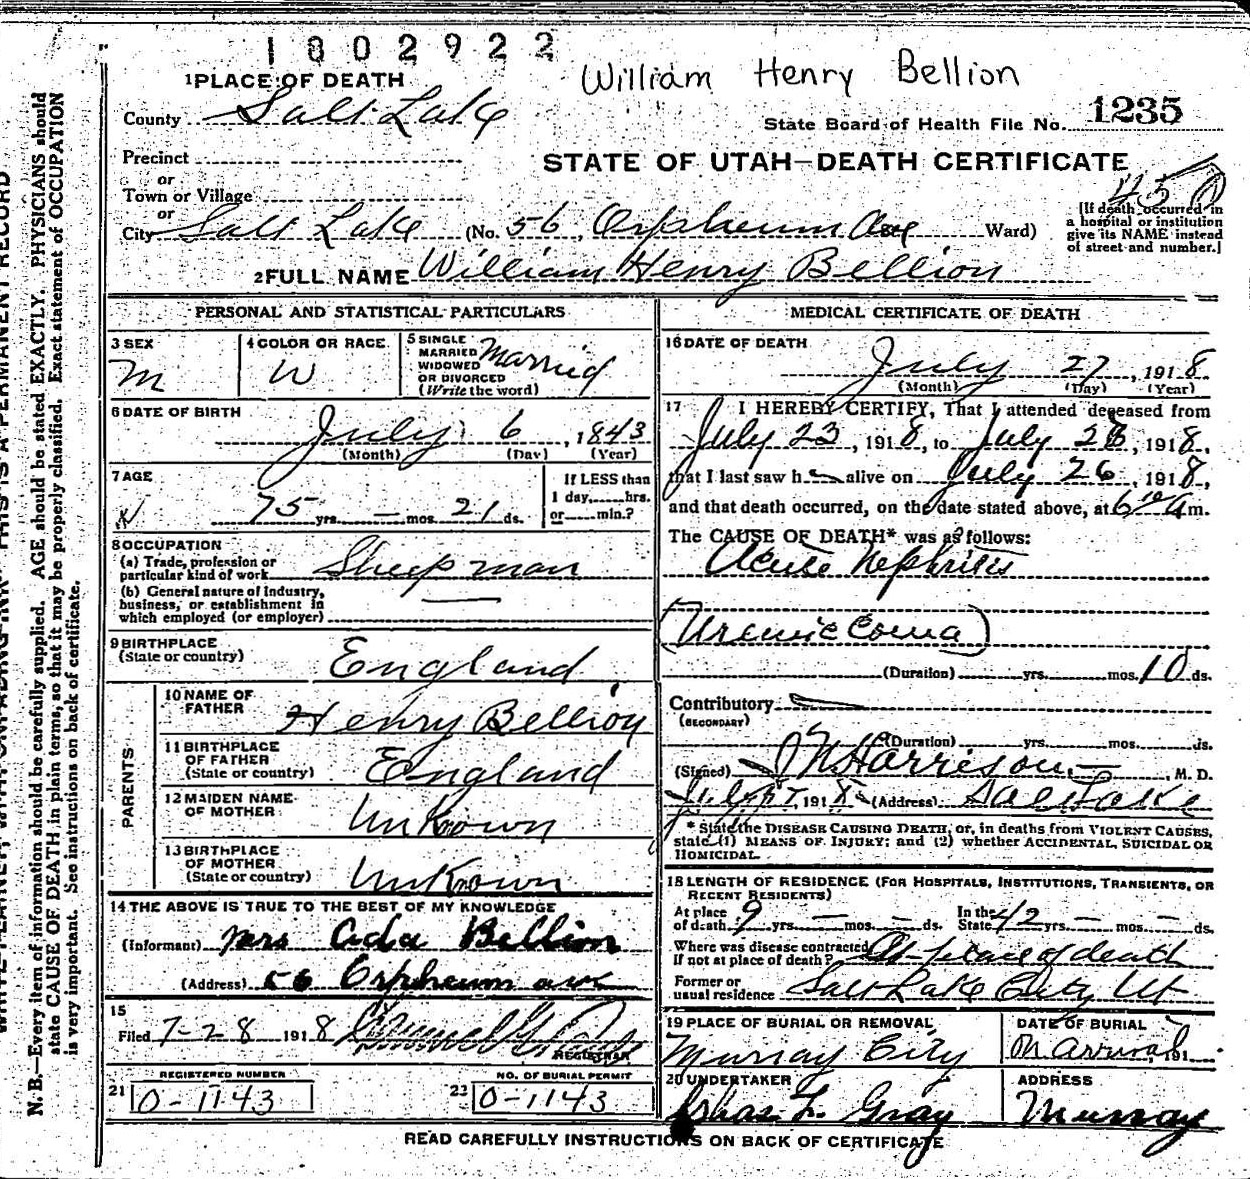 1802922
William Henry Bellion
1 PLACE OF DEATH
County Salt Lake
State Board of Health File No. 1235
Precinct
or
STATE OF UTAH—DEATH CERTIFICATE
Town or Village
or
City Salt Lake (No. 56, Orpheum Ave Ward)
[If death occurred in
a hospital or institution
give its NAME instead
of street and number.]
2 FULL NAME William Henry Bellion
PERSONAL AND STATISTICAL PARTICULARS
3 SEX
M
4 COLOR OR RACE
W
5 SINGLE
MARRIED
WIDOWED
OR DIVORCED
(Write the word)
Married
6 DATE OF BIRTH
July 6, 1843
(Month) (Day) (Year)
7 AGE
75 yrs. — mos. 21 ds.
If LESS than
1 day,......hrs.
or......min.?
8 OCCUPATION
(a) Trade, profession or
particular kind of work Sheep man
(b) General nature of industry,
business, or establishment in
which employed (or employer) —
9 BIRTHPLACE
(State or country) England
PARENTS
10 NAME OF
FATHER Henry Bellion
11 BIRTHPLACE
OF FATHER
(State or country) England
12 MAIDEN NAME
OF MOTHER Unknown
13 BIRTHPLACE
OF MOTHER
(State or country) Unknown
14 THE ABOVE IS TRUE TO THE BEST OF MY KNOWLEDGE
(Informant) Mrs Ada Bellion
(Address) 56 Orpheum ave
15
Filed 7-28 1918
REGISTRAR
REGISTERED NUMBER
21 O-1143
NO. OF BURIAL PERMIT
22 O-1143
MEDICAL CERTIFICATE OF DEATH
16 DATE OF DEATH
July 27, 1918
(Month) (Day) (Year)
17 I HEREBY CERTIFY, That I attended deceased from
July 23, 1918, to July 26, 1918,
that I last saw h alive on July 26, 1918,
and that death occurred, on the date stated above, at 6 10 a m.
The CAUSE OF DEATH* was as follows:
Acute Nephritis
(Uremic Coma)
(Duration) yrs. mos. 10 ds.
Contributory
(SECONDARY)
(Duration) yrs. mos. ds.
(Signed) Harrison, M. D.
1918 (Address) Salt Lake
* State the DISEASE CAUSING DEATH, or, in deaths from VIOLENT CAUSES,
state (1) MEANS OF INJURY; and (2) whether ACCIDENTAL, SUICIDAL OR
HOMICIDAL.
18 LENGTH OF RESIDENCE (FOR HOSPITALS, INSTITUTIONS, TRANSIENTS, OR
RECENT RESIDENTS)
At place
of death 9 yrs. — mos. — ds. In the
State 42 yrs. — mos. — ds.
Where was disease contracted
If not at place of death? At place of death
Former or
usual residence Salt Lake City Ut
19 PLACE OF BURIAL OR REMOVAL
Murray City
DATE OF BURIAL
On arrival, 191
20 UNDERTAKER
Chas L. Gray
ADDRESS
Murray
READ CAREFULLY INSTRUCTIONS ON BACK OF CERTIFICATE
N. B.—Every item of information should be carefully supplied. AGE should be stated EXACTLY. PHYSICIANS should
state CAUSE OF DEATH in plain terms, so that it may be properly classified. Exact statement of OCCUPATION
is very important. See instructions on back of certificate.